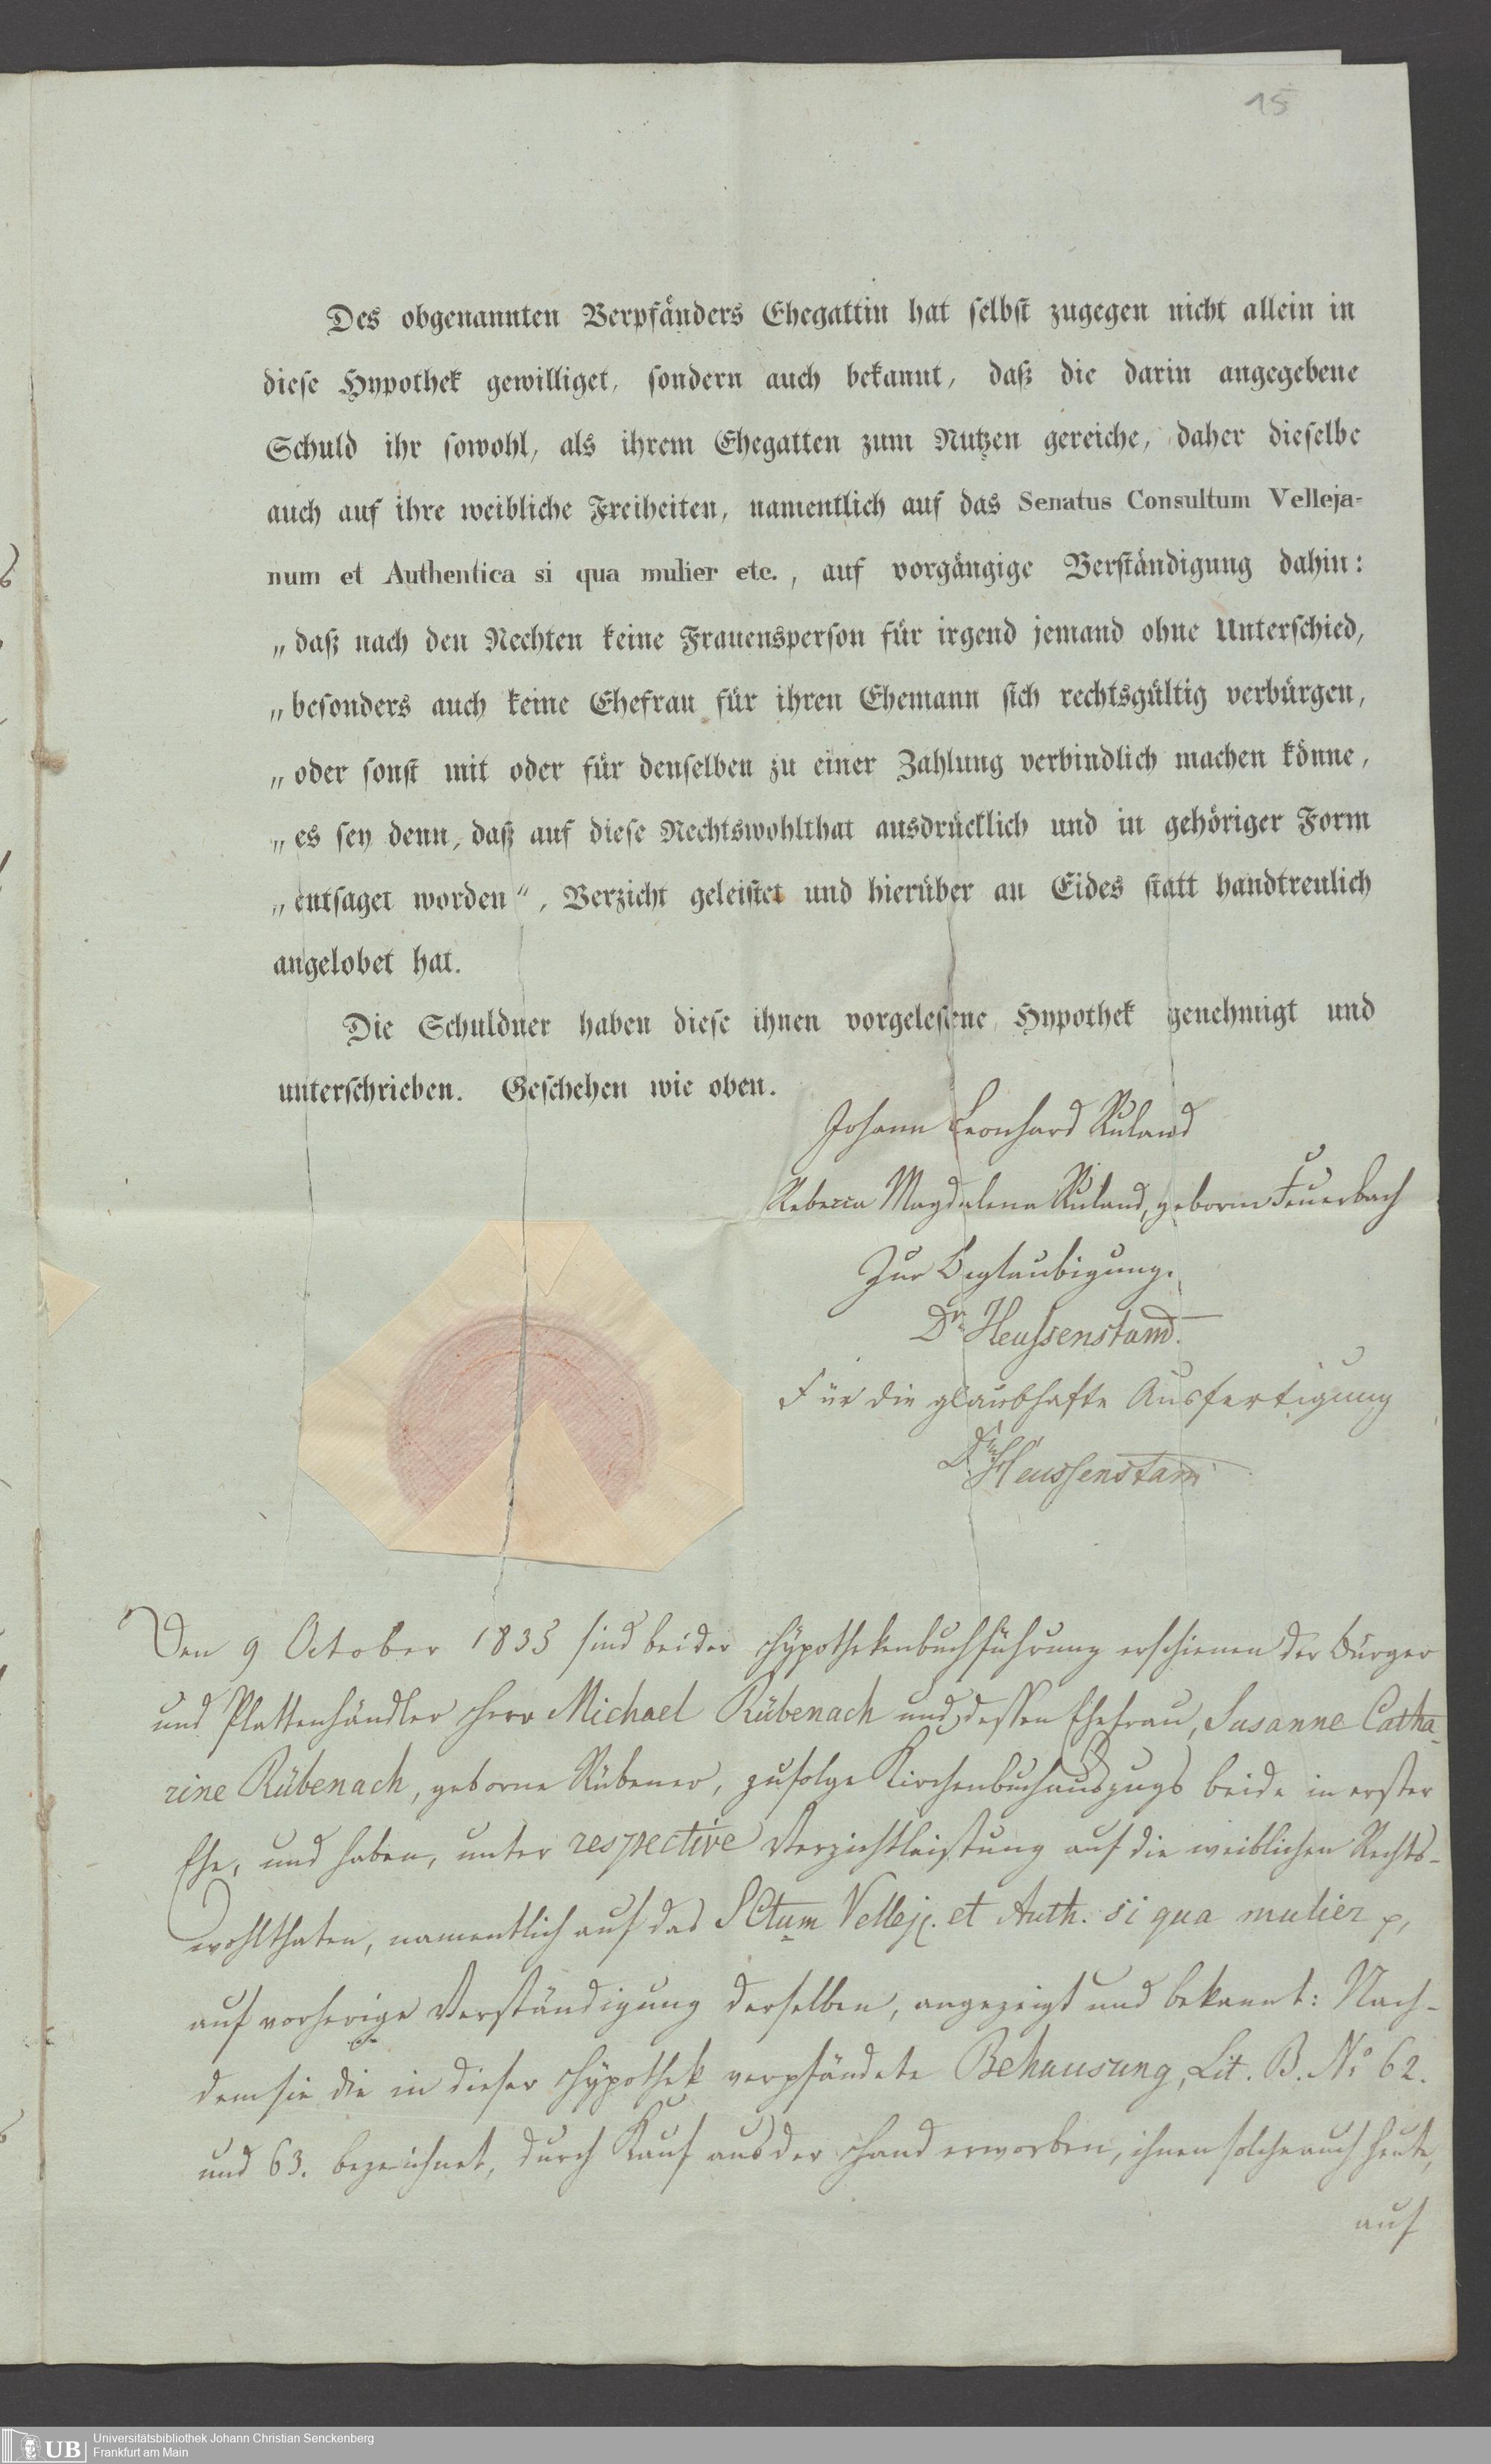 15
Des obgenannten Verpfänders Ehegattin hat selbst zugegen nicht allein in
diese Hypothek gewilliget, sondern auch bekannt, daß die darin angegebene
Schuld ihr sowohl, als ihrem Ehegatten zum Nutzen gereiche, daher dieselbe
auch auf ihre weibliche Freiheiten, namentlich auf das Senatus Consultum Velleja-
num et Authentica si qua mulier etc., auf vorgängige Verständigung dahin:
„daß nach den Rechten keine Frauensperson für irgend jemand ohne Unterschied,
„besonders auch keine Ehefrau für ihren Ehemann sich rechtsgültig verbürgen,
„oder sonst mit oder für denselben zu einer Zahlung verbindlich machen könne,
„es sey denn, daß auf diese Rechtswohlthat ausdrücklich und in gehöriger Form
„entsaget worden“, Verzicht geleistet und hierüber an Eides statt handtreulich
angelobet hat.
Die Schuldner haben diese ihnen vorgelesene Hypothek genehmigt und
unterschrieben. Geschehen wie oben.
Johann Leonhard Ruland
Rebecca Magdalena Ruland, geborne Feuerbach
Zur Beglaubigung.
Dr. Heussenstam.
Für die glaubhafte Ausfertigung
Dr. Heussenstam
Den 9 October 1835 sind bei der Hypothekenbuchführung erschienen der Bürger
und Plattenhändler Herr Michael Rübenach und dessen Ehefrau, Susanne Catha-
rine Rübenach, geborne Rübener, zufolge Kirchenbuchauszugs beide in erster
Ehe, und haben, unter respective Verzichtleistung auf die weiblichen Rechts-
wohlthaten, namentlich auf das SCtum Vellej. et Auth. si qua mulier p,
auf vorherige Verständigung derselben, angezeigt und bekannt: Nach-
dem sie die in dieser Hypothek verpfändete Behausung, Lit. B. No 62.
und 63. bezeichnet, durch Kauf aus der Hand erworben, ihnen solche auch heute,
auf
UB
Universitätsbibliothek Johann Christian Senckenberg
Frankfurt am Main